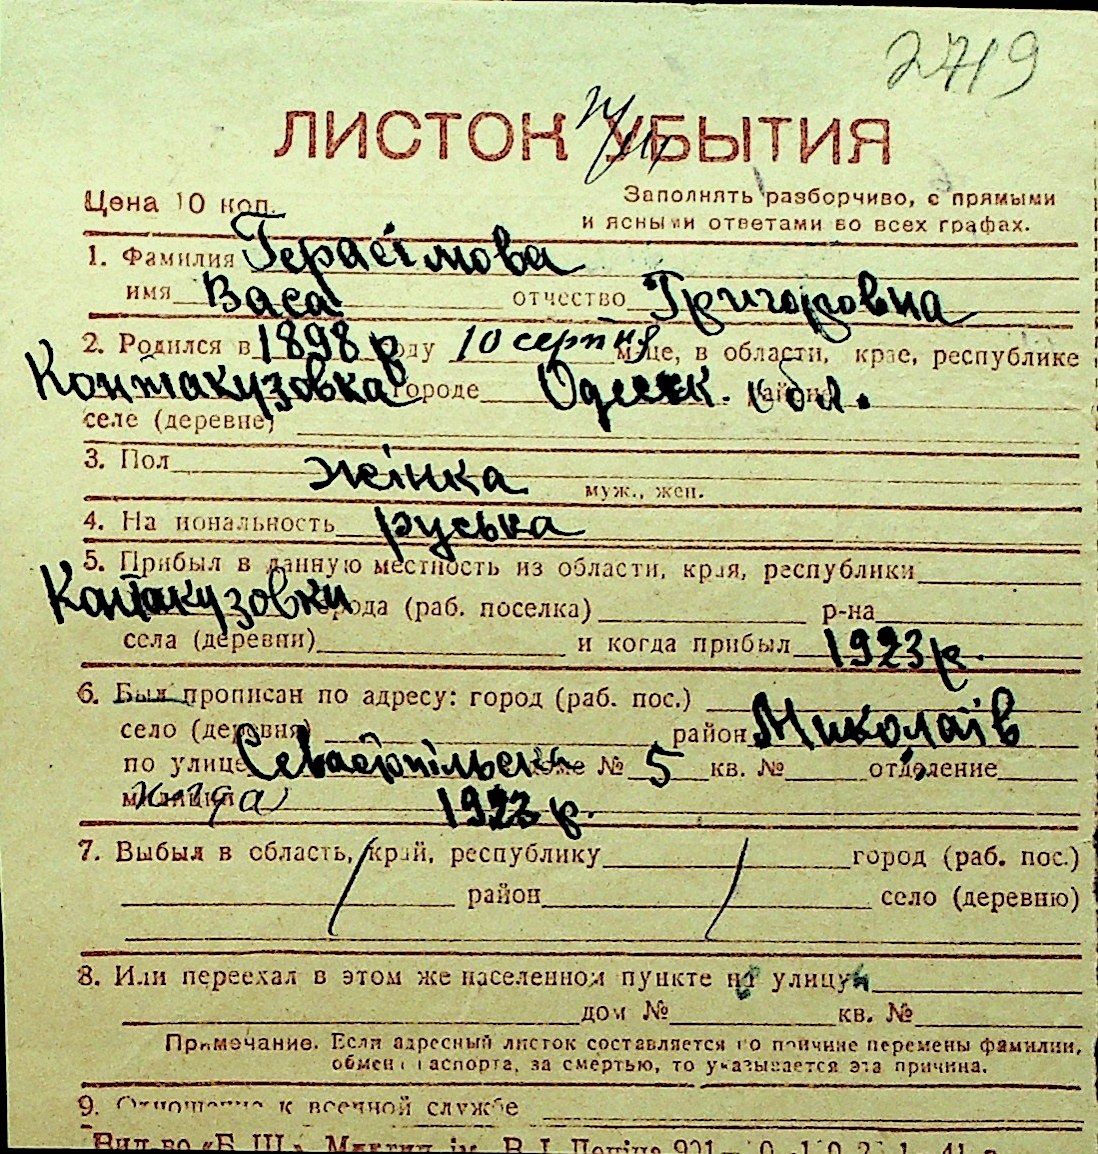 2719
ЛИСТОК УБЫТИЯ
Цена 10 коп. Заполнять разборчиво, с прямыми
и ясными ответами во всех графах.
1. Фамилия Герасімова
имя Васа отчество Григоровна
2. Родился в 1898 р году 10 серпня м-це, в области, крае, республике
Контакузовка городе Одеськ. обл. район
селе (деревне)
3. Пол жінка муж., жен.
4. Национальность руська
5. Прибыл в данную местность из области, края, республики
Контакузовки города (раб. поселка) р-на
села (деревни) и когда прибыл 1923 р.
6. Был прописан по адресу: город (раб. пос.)
село (деревня) район Миколаїв
по улице Севастопільській доме № 5 кв. № отделение
милиции 1923 р.
7. Выбыл в область, край, республику город (раб. пос.)
район село (деревню)
8. Или переехал в этом же населенном пункте на улицу
дом № кв. №
Примечание. Если адресный листок составляется по причине перемены фамилии,
обмен паспорта, за смертью, то указывается эта причина.
9. Отношение к военной службе
Вид-во «Б. Ш.»